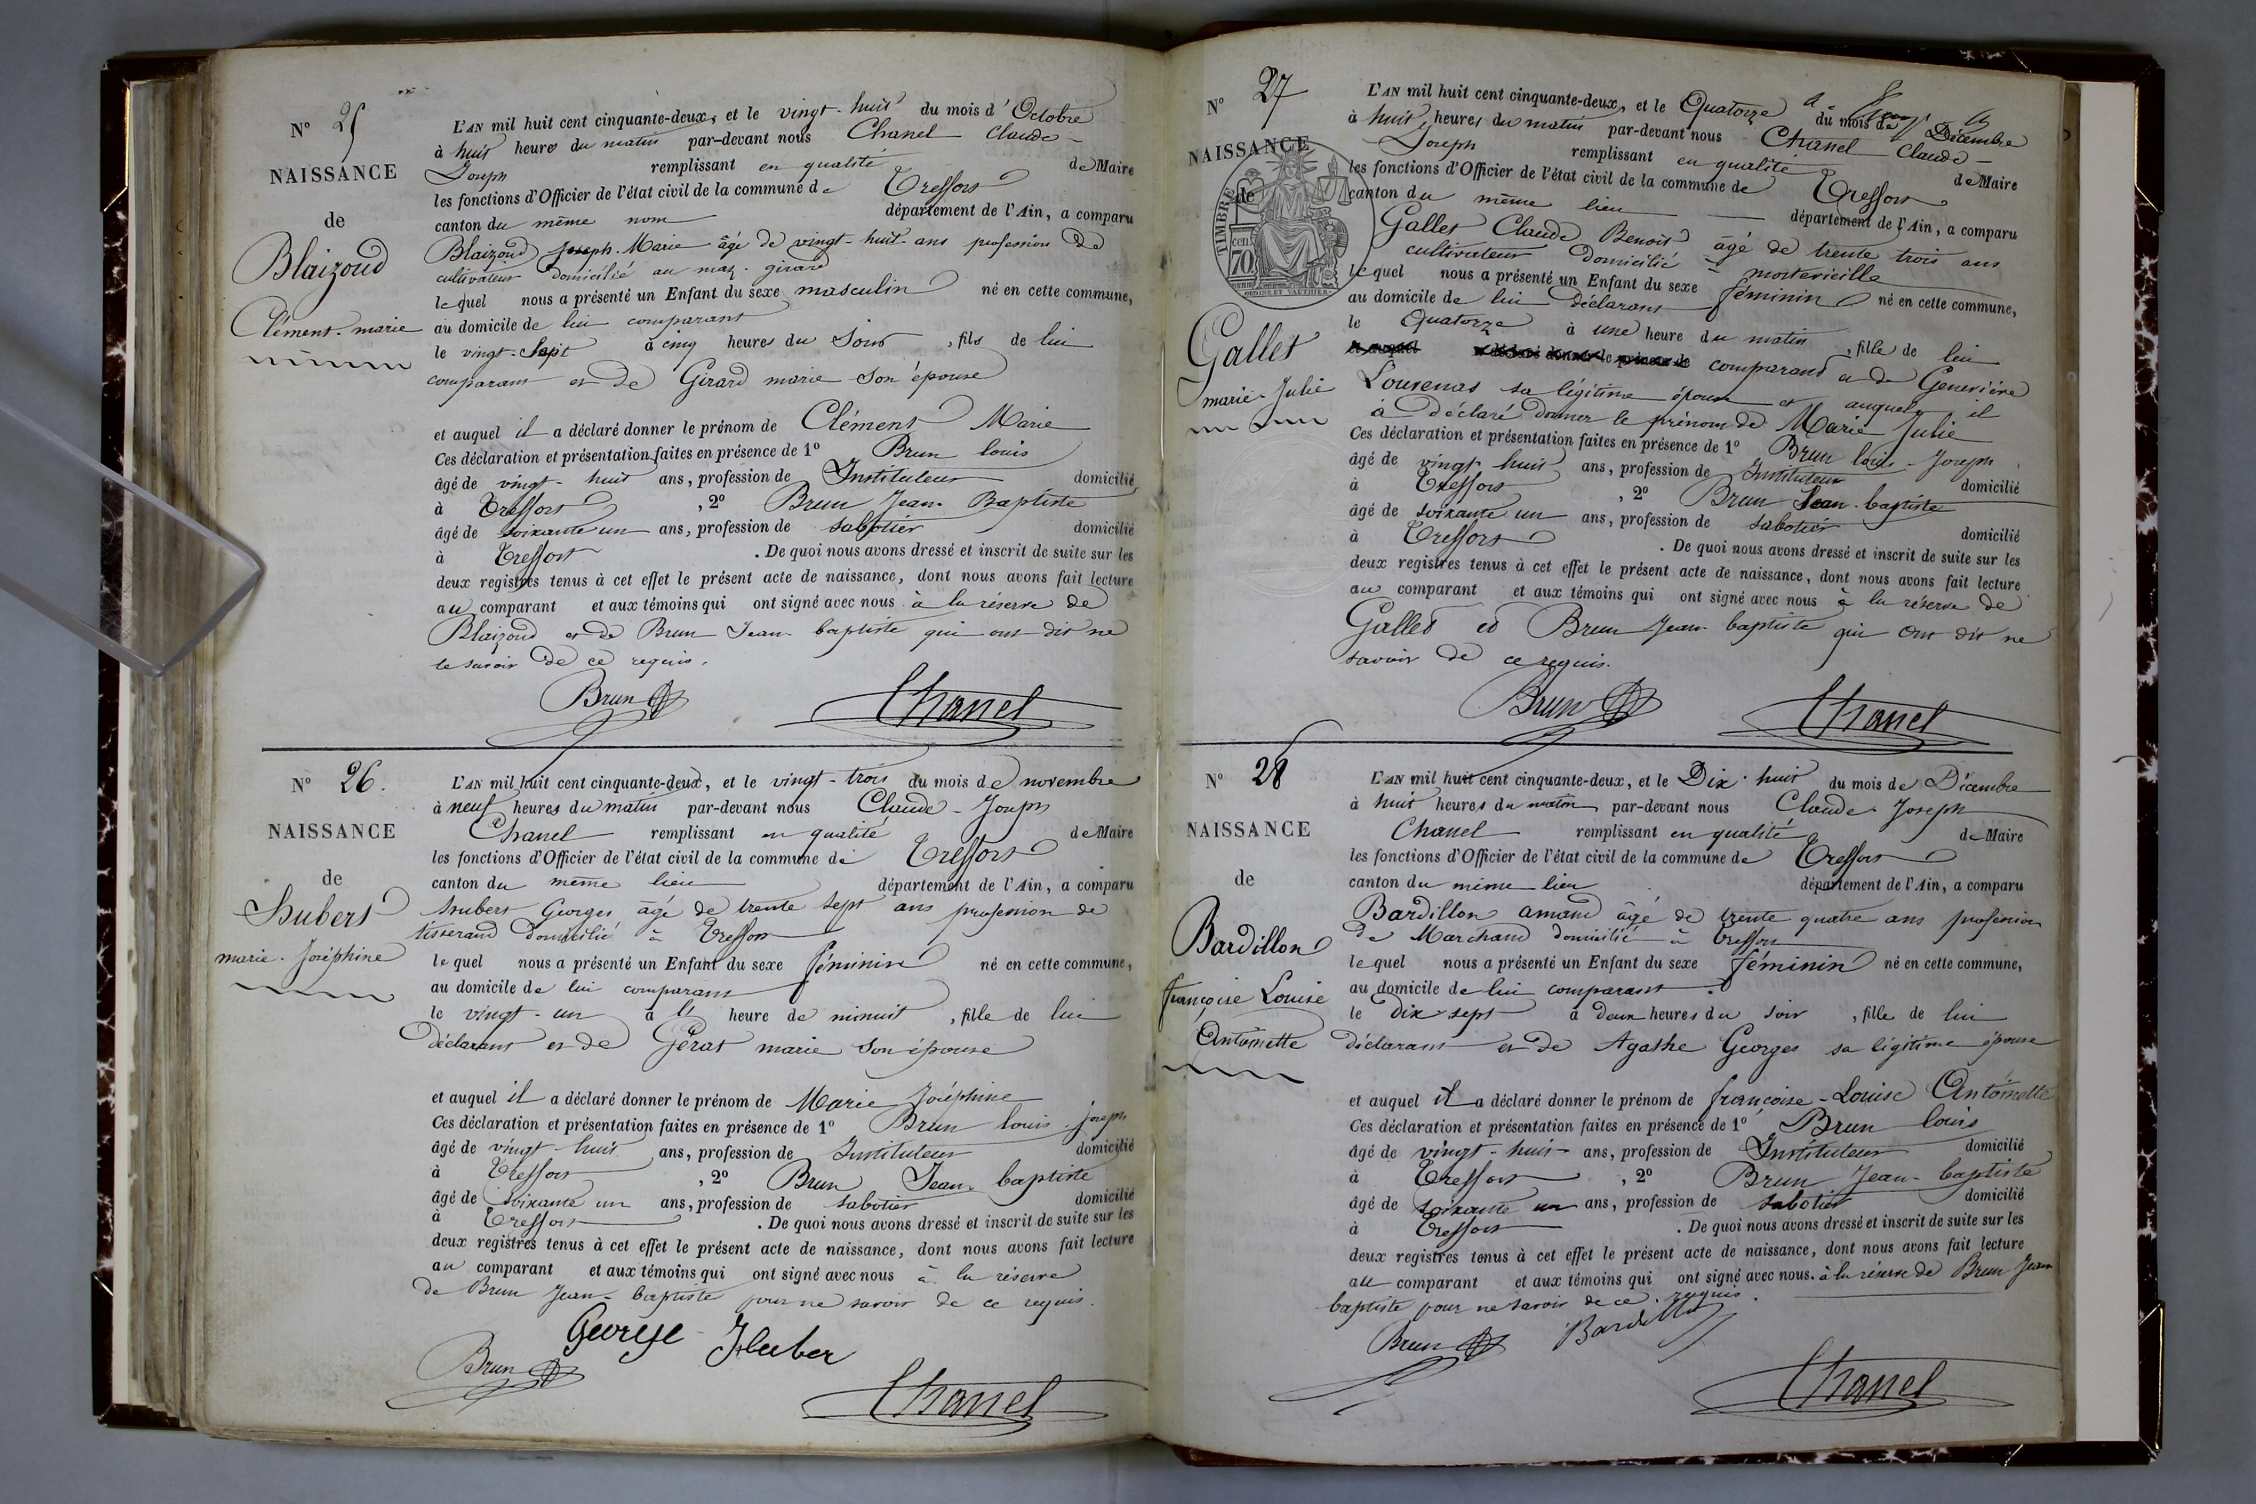 N° 25
NAISSANCE
de
Blaizoud
Clément-marie
L'AN mil huit cent cinquante-deux, et le vingt-huit du mois d'Octobre
à huit heures du matin par-devant nous Chanel Claude-
Joseph remplissant en qualité de Maire
les fonctions d'Officier de l'état civil de la commune de Treffort
canton du même nom département de l'Ain, a comparu
Blaizoud Joseph-Marie âgé de vingt-huit ans profession de
cultivateur domicilié au maz-girard
lequel nous a présenté un Enfant du sexe masculin né en cette commune,
au domicile de lui comparant
le vingt-Sept à cinq heures du Soir, fils de lui
comparant et de Girard marie Son épouse
et auquel il a déclaré donner le prénom de Clément Marie
Ces déclaration et présentation faites en présence de 1° Brun louis
âgé de vingt-huit ans, profession de Instituteur domicilié
à Treffort, 2° Brun Jean-Baptiste
âgé de soixante un ans, profession de sabotier domicilié
à Treffort. De quoi nous avons dressé et inscrit de suite sur les
deux registres tenus à cet effet le présent acte de naissance, dont nous avons fait lecture
au comparant et aux témoins qui ont signé avec nous à la réserve de
Blaizoud et de Brun Jean-baptiste qui ont dit ne
le savoir de ce requis.
Brun Chanel
N° 26.
NAISSANCE
de
hubert
marie-Joséphine
L'AN mil huit cent cinquante-deux, et le vingt-trois du mois de novembre
à neuf heures du matin par-devant nous Claude-Joseph
Chanel remplissant en qualité de Maire
les fonctions d'Officier de l'état civil de la commune de Treffort
canton du même lieu département de l'Ain, a comparu
hubert Georges, âgé de trente sept ans profession de
tisserand domicilié à Treffort
lequel nous a présenté un Enfant du sexe féminin né en cette commune,
au domicile de lui comparant
le vingt-un à l' heure de minuit, fille de lui
déclarant et de Gérat marie Son épouse
et auquel il a déclaré donner le prénom de Marie Joséphine
Ces déclaration et présentation faites en présence de 1° Brun louis-joseph
âgé de vingt-huit ans, profession de Instituteur domicilié
à Treffort, 2° Brun Jean-baptiste
âgé de soixante un ans, profession de sabotier domicilié
à Treffort. De quoi nous avons dressé et inscrit de suite sur les
deux registres tenus à cet effet le présent acte de naissance, dont nous avons fait lecture
au comparant et aux témoins qui ont signé avec nous à la réserve
de Brun Jean-baptiste pour ne savoir de ce requis.
George Huber
Brun Chanel
N° 27
NAISSANCE
de
TIMBRE
cen.
70
Gallet
marie-Julie
L'AN mil huit cent cinquante-deux, et le Quatorze du mois de Décembre
à huit heures du matin par-devant nous Chanel Claude-
Joseph remplissant en qualité de Maire
les fonctions d'Officier de l'état civil de la commune de Treffort
canton du même lieu département de l'Ain, a comparu
Gallet Claude Benoit âgé de trente trois ans
cultivateur domicilié à montevieille
lequel nous a présenté un Enfant du sexe féminin né en cette commune,
au domicile de lui déclarant
le Quatorze à une heure du matin, fille de lui
comparant et de Geneviève
Louvenas sa légitime épouse et auquel il
a déclaré donner le prénom de Marie Julie
Ces déclaration et présentation faites en présence de 1° Brun louis-Joseph
âgé de vingt-huit ans, profession de Instituteur
à Treffort, 2° Brun Jean-baptiste domicilié
âgé de soixante un ans, profession de sabotier
à Treffort domicilié
. De quoi nous avons dressé et inscrit de suite sur les
deux registres tenus à cet effet le présent acte de naissance, dont nous avons fait lecture
au comparant et aux témoins qui ont signé avec nous à la réserve de
Gallet et Brun Jean-baptiste qui ont dit ne
savoir de ce requis.
Brun Chanel
N° 28
NAISSANCE
de
Bardillon
françoise Louise
Antoinette
L'AN mil huit cent cinquante-deux, et le Dix-huit du mois de Décembre
à huit heures du matin par-devant nous Claude-Joseph
Chanel remplissant en qualité de Maire
les fonctions d'Officier de l'état civil de la commune de Treffort
canton du même lieu département de l'Ain, a comparu
Bardillon amand âgé de trente quatre ans profession
de Marchand domicilié à Treffort
lequel nous a présenté un Enfant du sexe féminin né en cette commune,
au domicile de lui comparant.
le dix sept à deux heures du soir, fille de lui
déclarant et de Agathe Georges sa légitime épouse
et auquel il a déclaré donner le prénom de françoise-Louise Antoinette
Ces déclaration et présentation faites en présence de 1° Brun louis
âgé de vingt-huit ans, profession de Instituteur domicilié
à Treffort, 2° Brun Jean-baptiste
âgé de soixante un ans, profession de sabotier domicilié
à Treffort. De quoi nous avons dressé et inscrit de suite sur les
deux registres tenus à cet effet le présent acte de naissance, dont nous avons fait lecture
au comparant et aux témoins qui ont signé avec nous. à la réserve de Brun Jean
baptiste pour ne savoir de ce requis.
Brun Bardillon
Chanel